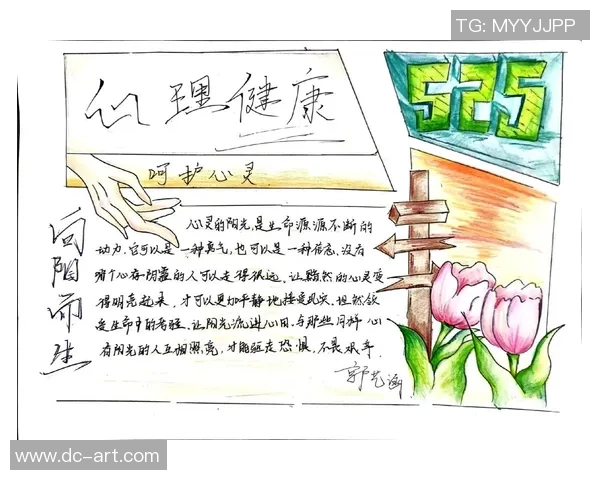 TG: MYYJJPP
心理健康
525
呵护心灵
向阳而生
心灵的阳光,是生命源源不断的
动力.它可以是一种勇气,也可以是一种信念,没有
哪个心存阴霾的人可以走得很远.让黯然的心灵变
得明亮起来,才可以更加平静地接受现实,坦然接
受生命中的考验.让阳光流进心田.与那些同样心
有阳光的人互相照亮,才能驱走恐惧,不畏艰辛.
www.dc-art.com